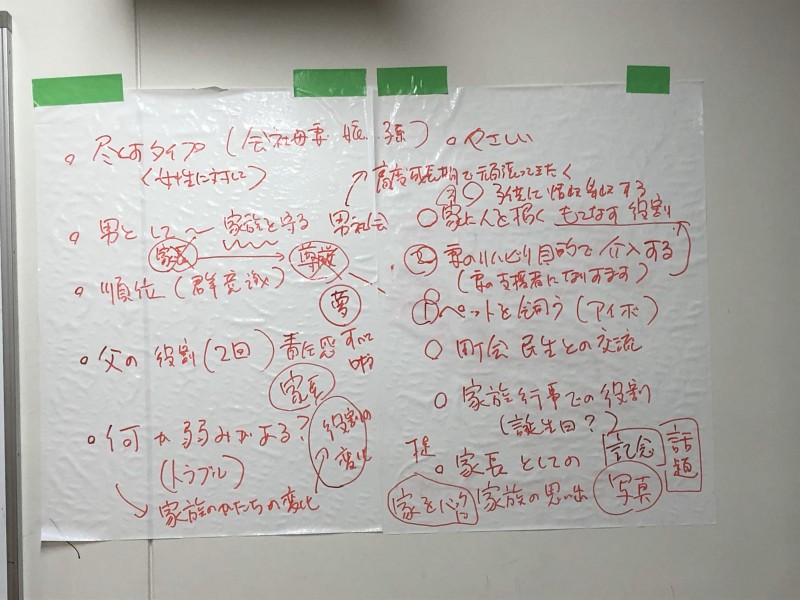 ○ 尽くすタイプ (会社 母 妻 娘 孫)
(女性に対して)
○ 男として〜 家族を守る 男社会
家長 → 尊厳
○ 順位 (群意識)
夢
○ 父の役割 (2回) 責任感
家長
○ 何か弱みがある? 役割の変化
(トラブル)
家族のかたちの変化
○ やさしい
高度成長期で頑張って
子供に
○ 家に人を招く もてなす 役割
妻の 目的で 介入する
(妻の支援者になりすます)
ペットを飼う (アイボ)
○ 町会 民生との交流
○ 家族行事での役割
(誕生日?)
○ 家長としての 記念 話題
家族の思い出 写真